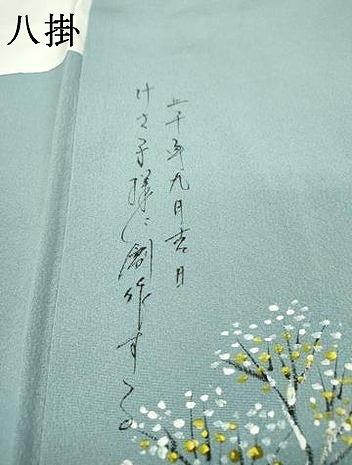 八掛
五十年九月吉日
けさ子様に創作す